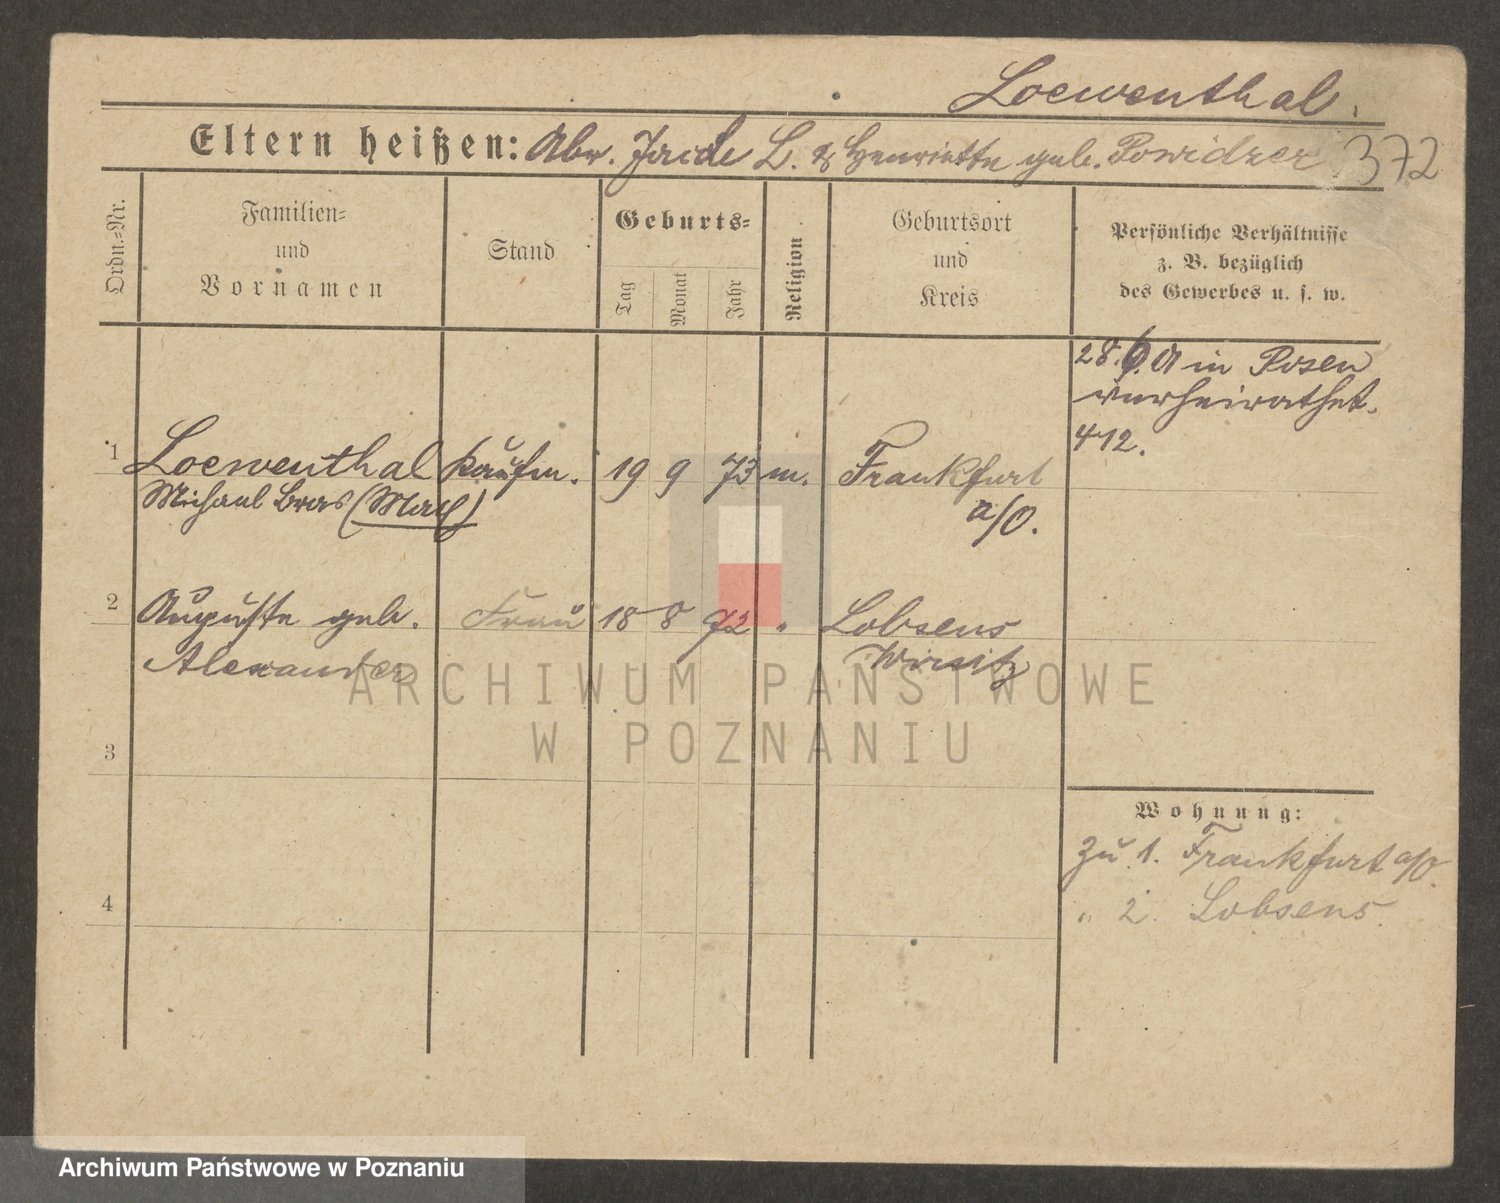 Loewenthal.
Eltern heißen: Abr. Jacde L. & Henriette geb. Powidzer
372
Ordn.=Nr.
Familien=
und
Vornamen
Stand
Geburts=
Tag
Monat
Jahr
Religion
Geburtsort
und
Kreis
Persönliche Verhältnisse
z. B. bezüglich
des Gewerbes u. s. w.
28. in Posen
verheirathet.
412.
1 Loewenthal Kaufm. 19 9 73 m. Frankfurt
Michael (Max) a/O.
2 Auguste geb. Frau 18 8 72 " Lobsens
Alexander Wirsitz
3
4
Wohnung:
Zu 1. Frankfurt a/O.
" 2. Lobsens
ARCHIWUM PAŃSTWOWE
W POZNANIU
Archiwum Państwowe w Poznaniu